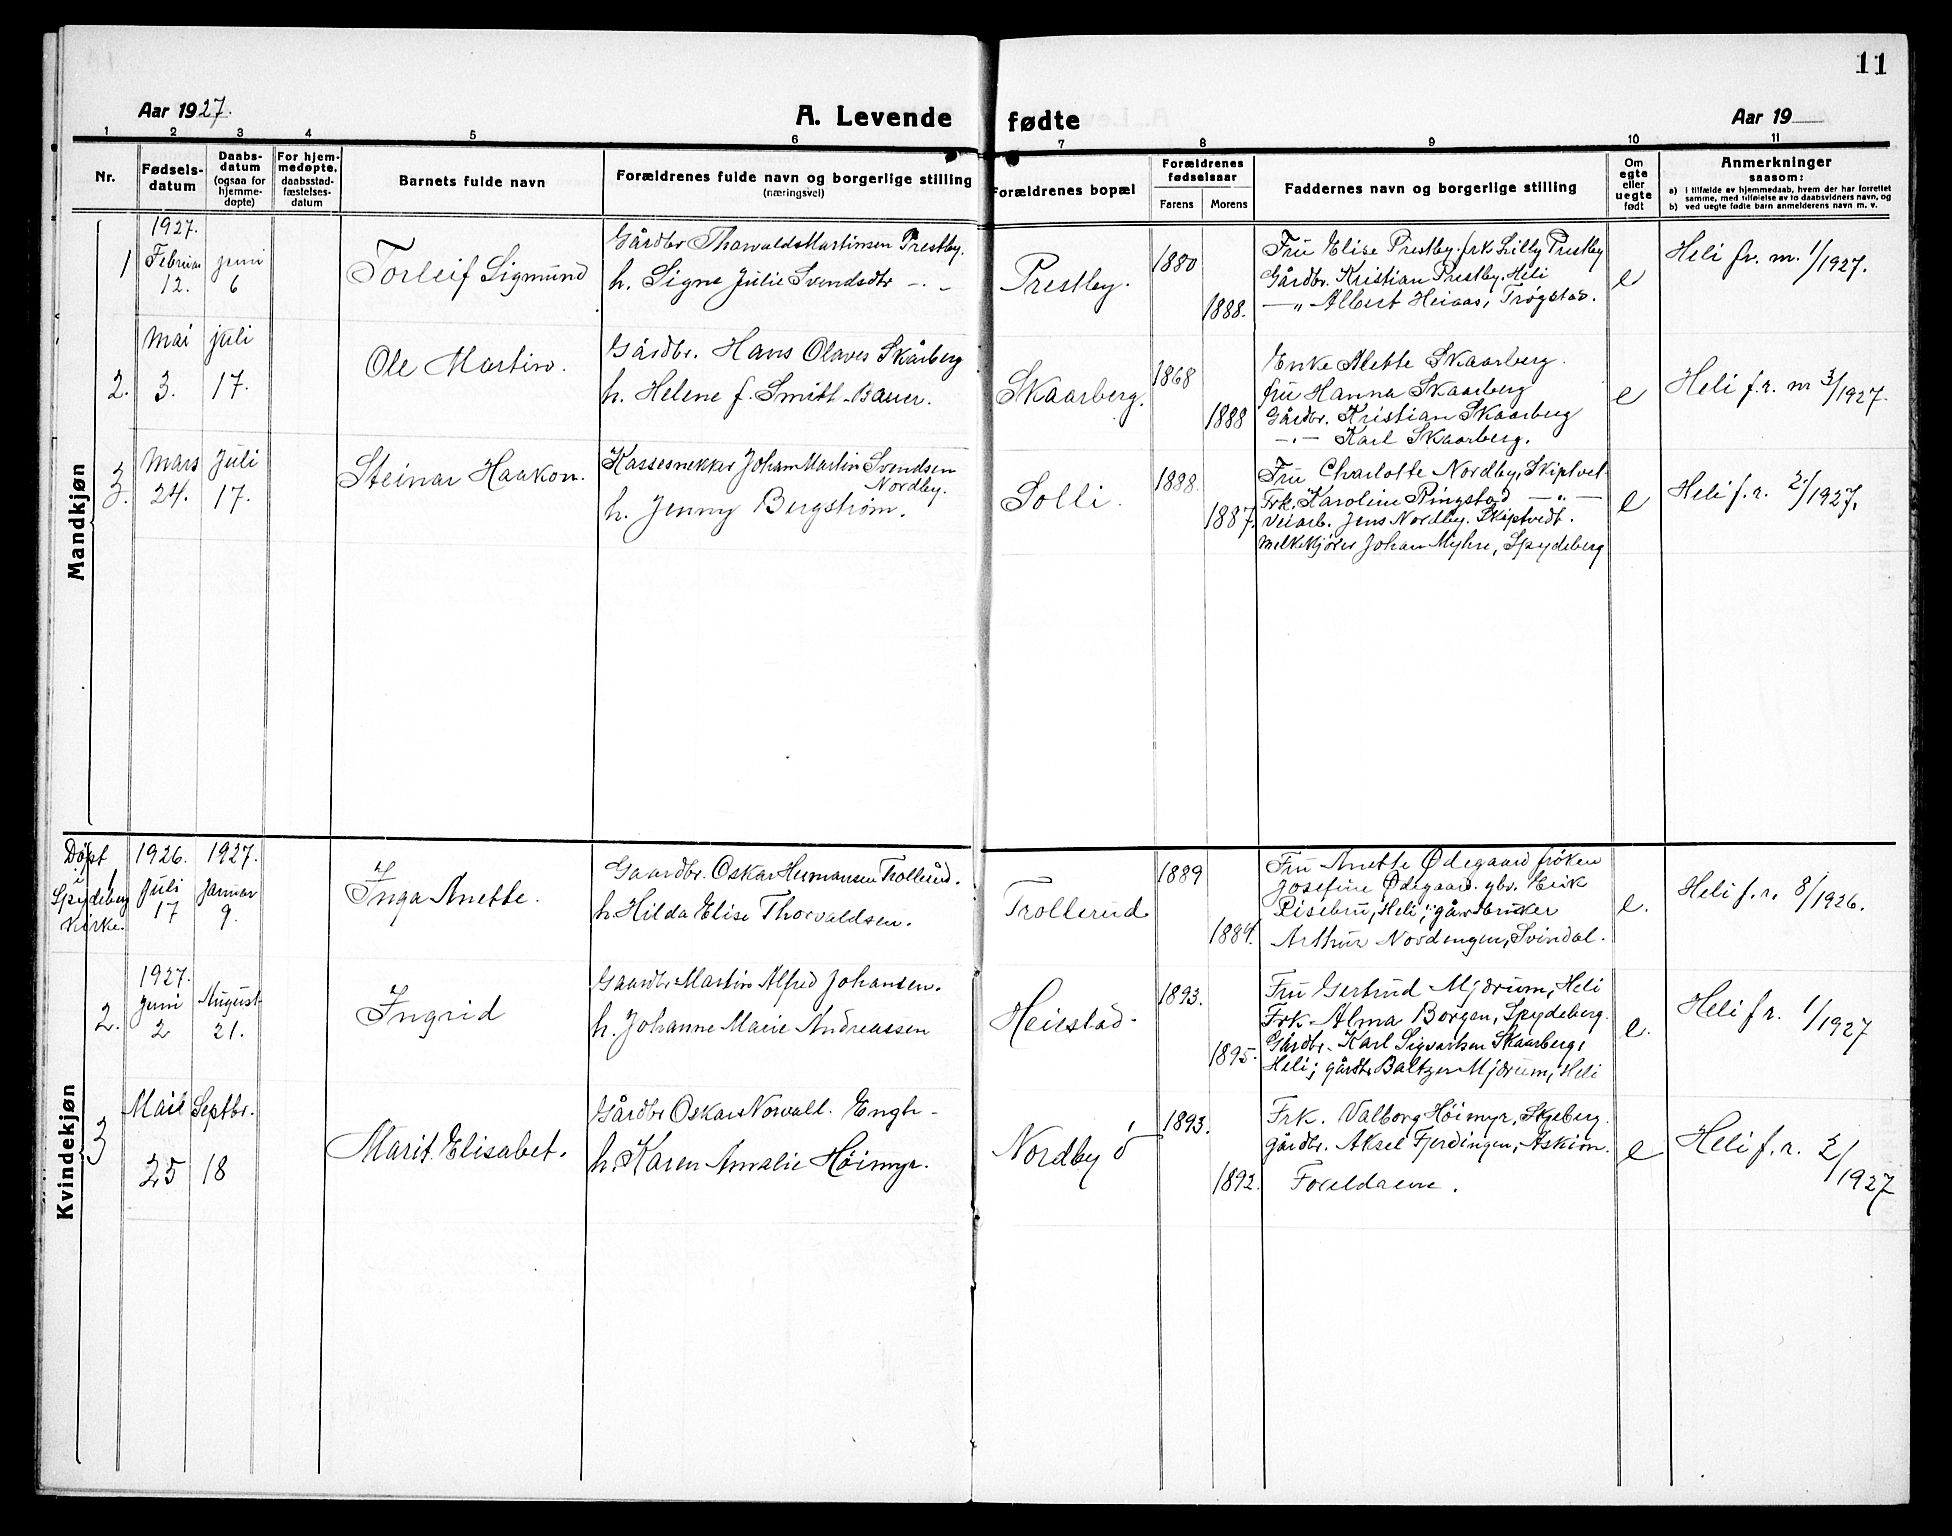 11
Aar 1927.
A. Levende
fødte
Aar 19
1 2 3 4 5 6 7 8 9 10 11
Nr.
Fødsels-
datum
Daabs-
datum
(ogsaa for
hjemme-
døpte)
For hjem-
medøpte,
daabsstad-
fæstelses-
datum
Barnets fulde navn
Forældrenes fulde navn og borgerlige stilling
(næringsvei)
Forældrenes bopæl
Forældrenes
fødselsaar
Farens Morens
Faddernes navn og borgerlige stilling
Om
egte
eller
uegte
født
Anmerkninger
saasom:
a) i tilfælde av hjemmedaab, hvem der har forrettet
samme, med tilføielse av to daabsvidners navn, og
b) ved uegte fødte barn anmelderens navn m. v.
Mandkjøn
1
1927.
Februar
12.
juni
6
Torleif Sigmund
Gårdbr Thorvald Martinsen Prestby.
h. Signe Julie Svendsdtr - „ -
Prestby.
1880
1888.
Fru Elise Prestby. frk Lilly Prestby
Gårdbr. Kristian Prestby, Heli
— „ Albert Heiaas, Trøgstad.
e
Heli fr. m. 1/1927.
2.
Mai
3.
juli
17.
Ole Martin.
Gårdbr. Hans Olaves Skårberg
h. Helene f. Smitt-Bauer.
Skaarberg.
1868
1888
Enke Alette Skaarberg.
fru Hanna Skaarberg
Gårdbr. Kristian Skaarberg
— „ — Karl Skaarberg.
e
Heli f. r. m 3/1927.
3.
Mars
24.
Juli
17.
Steinar Haakon.
Kassesnekker Johan Martin Svendsen
Nordby.
h. Jenny Bergstrøm.
Solli.
1888.
1887.
Fru Charlotte Nordby, Skiptvet
Frk. Karoline Ringstad — „ —
Veiarb. Jens Nordby. Skiptvedt.
Melkekjører Johan Myhre, Spydeberg
e
Heli f. r. 2/1927.
Kvindekjøn
Døpt
i
Spydeberg
kirke.
1
1926.
Juli
17
1927.
Januar
9.
Inga Anette.
Gaardbr. Oskar Hermansen Trollerud.
h. Hilda Elise Thorvaldsen.
Trollerud
1889
1884.
Fru Anette Ødegaard frøken
Josefine Ødegaard. gbr. Erik
Risebru, Heli, gårdbruker
Arthur Nordengen, Svindal.
e.
Heli f. r. 8/1926.
2.
1927.
Juni
2
August
21.
Ingrid
Gaardbr Martin Alfred Johansen.
h. Johanne Marie Andreassen
Heiestad.
1893.
1895.
Fru Gertrud Mjærum, Heli
Frk. Alma Borgen, Spydeberg.
Gårdbr. Karl Sigvartsen Skaarberg,
Heli; gårdbr Baltzer Mjærum, Heli
e.
Heli f r. 1/1927
3
Mai
25
Septbr.
18
Marit Elisabet.
Gårdbr Oskar Norvall. Engh -
h. Karen Amalie Høimyr.
Nordby ø
1893.
1892.
Frk. Valborg Høimyr, Skjeberg.
gårdbr. Aksel Fjerdingen, Askim.
Foreldrene.
e
Heli f. r. 2/1927